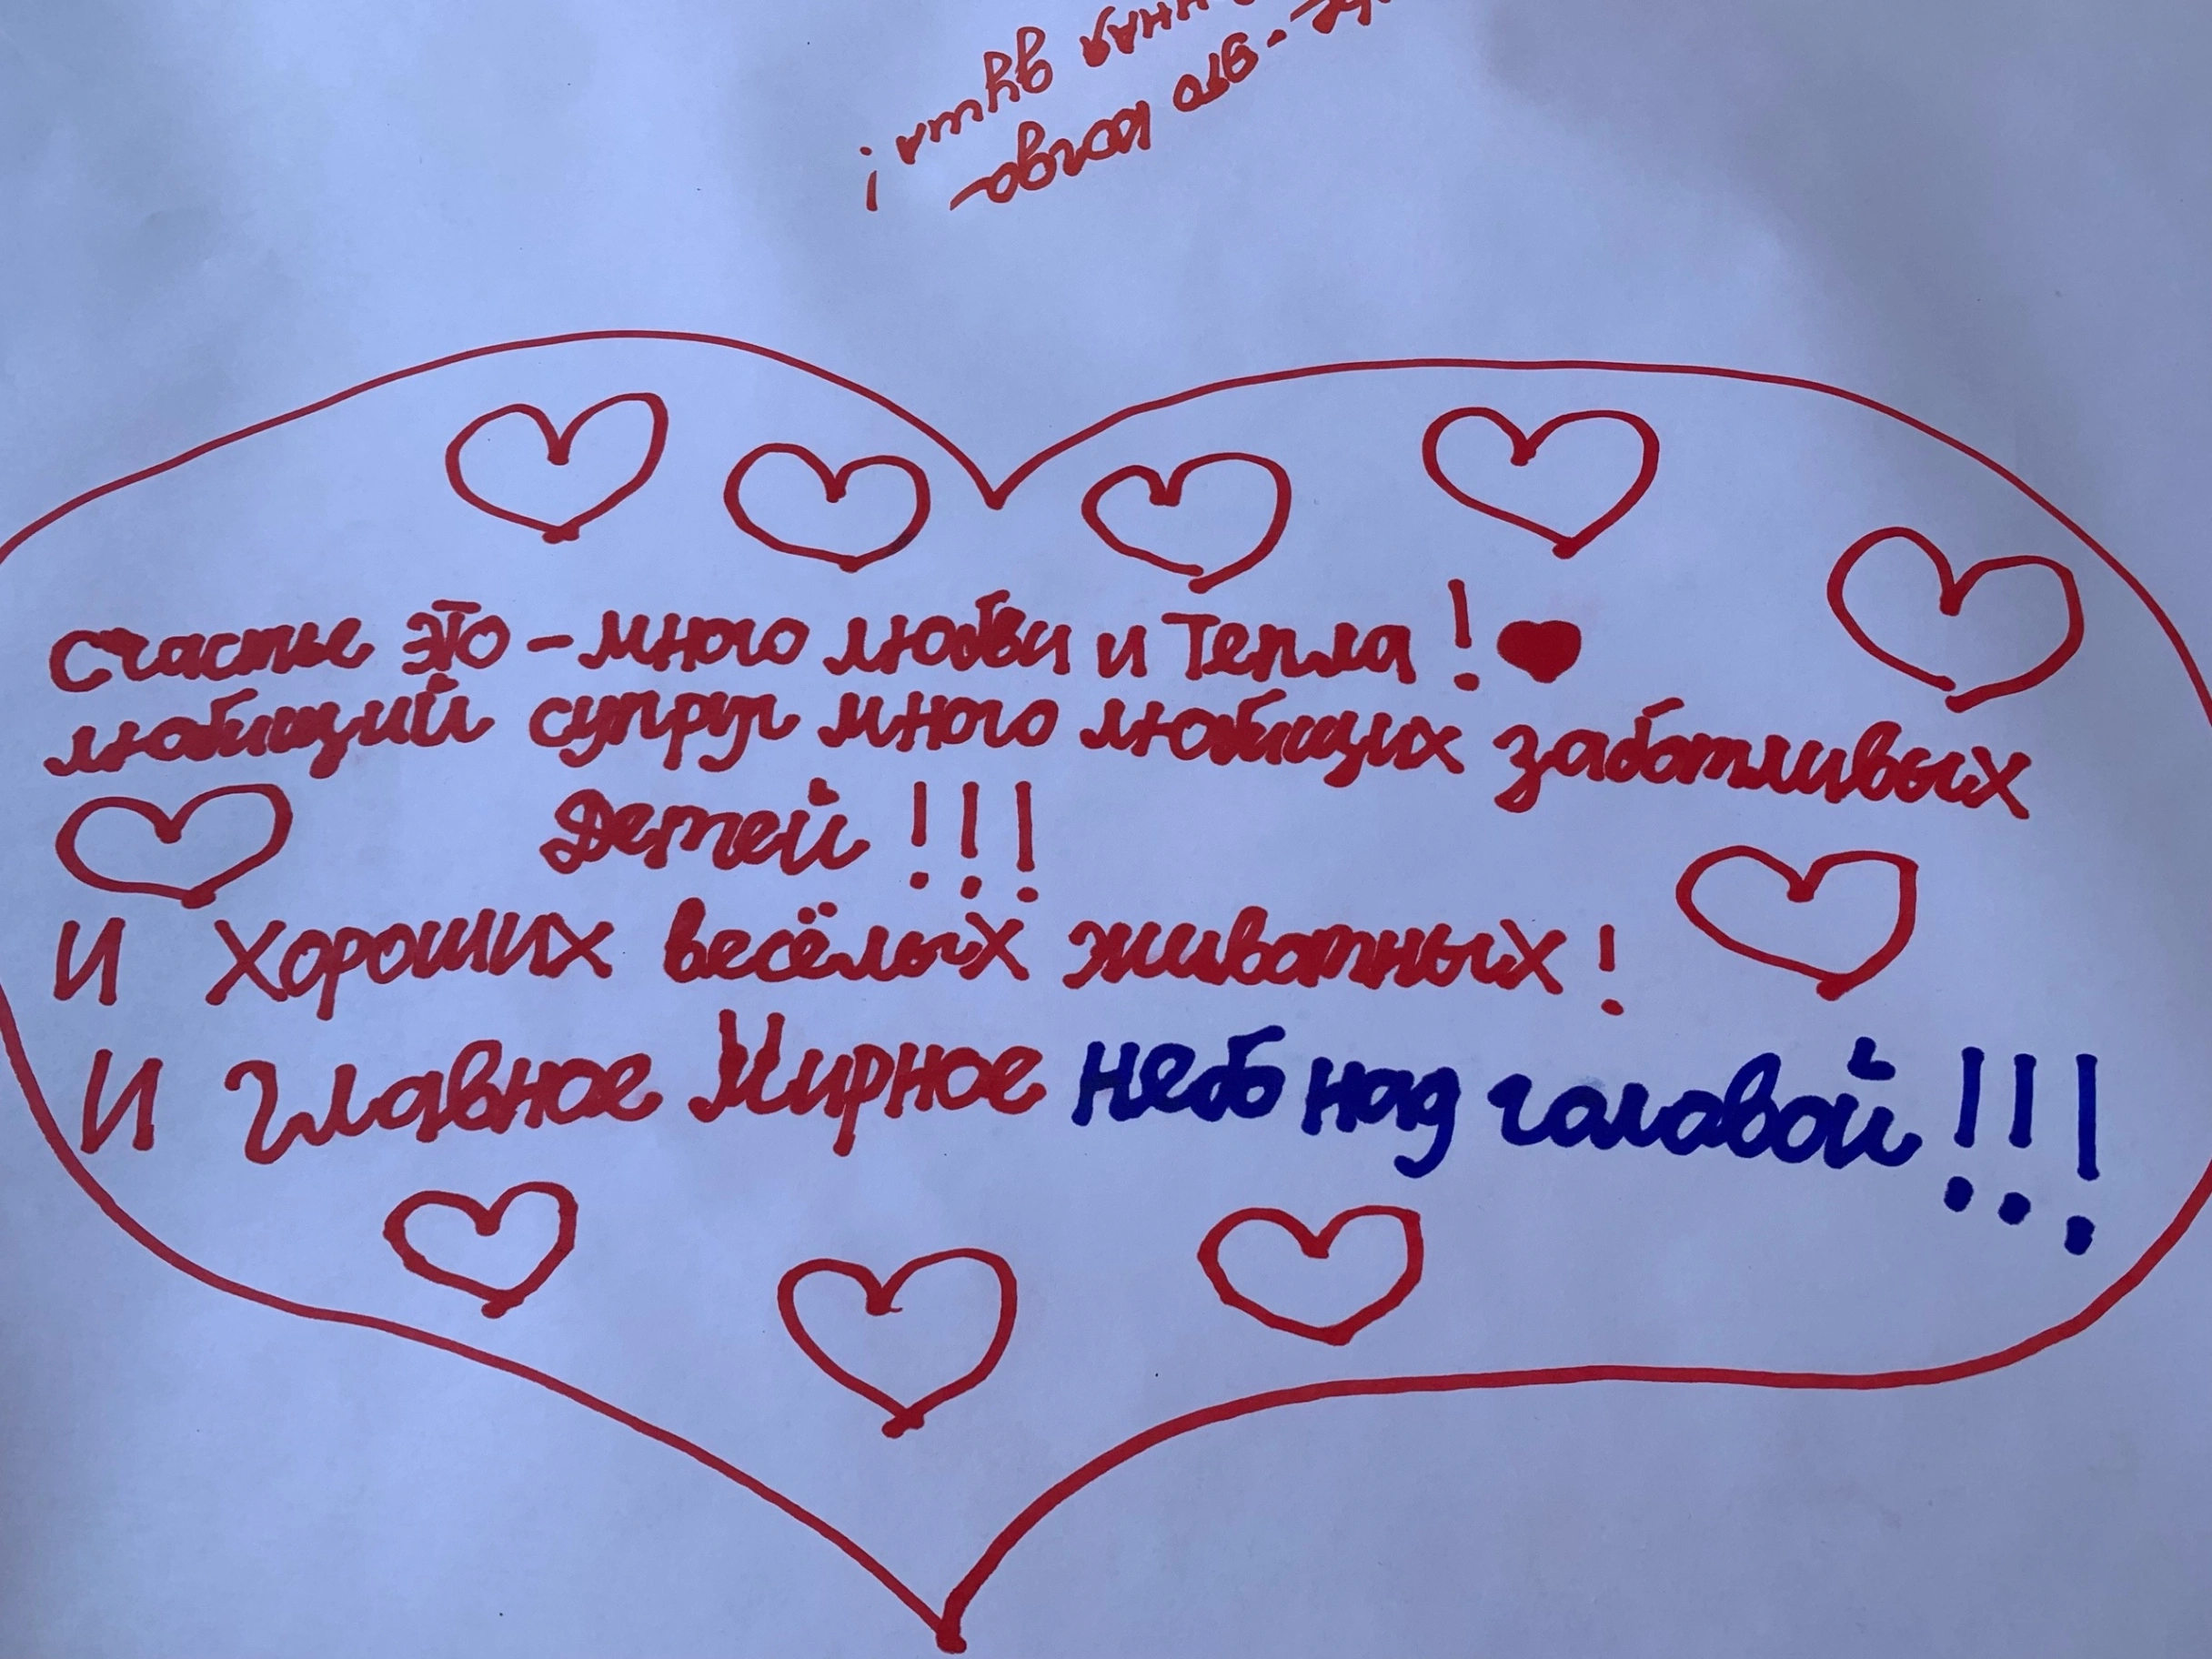 -это когда
душа!
Счастье это - много любви и Тепла!
любящий супруг много любящих заботливых
Детей!!!
И Хороших весёлых животных!
И Главное Мирное небо над головой!!!